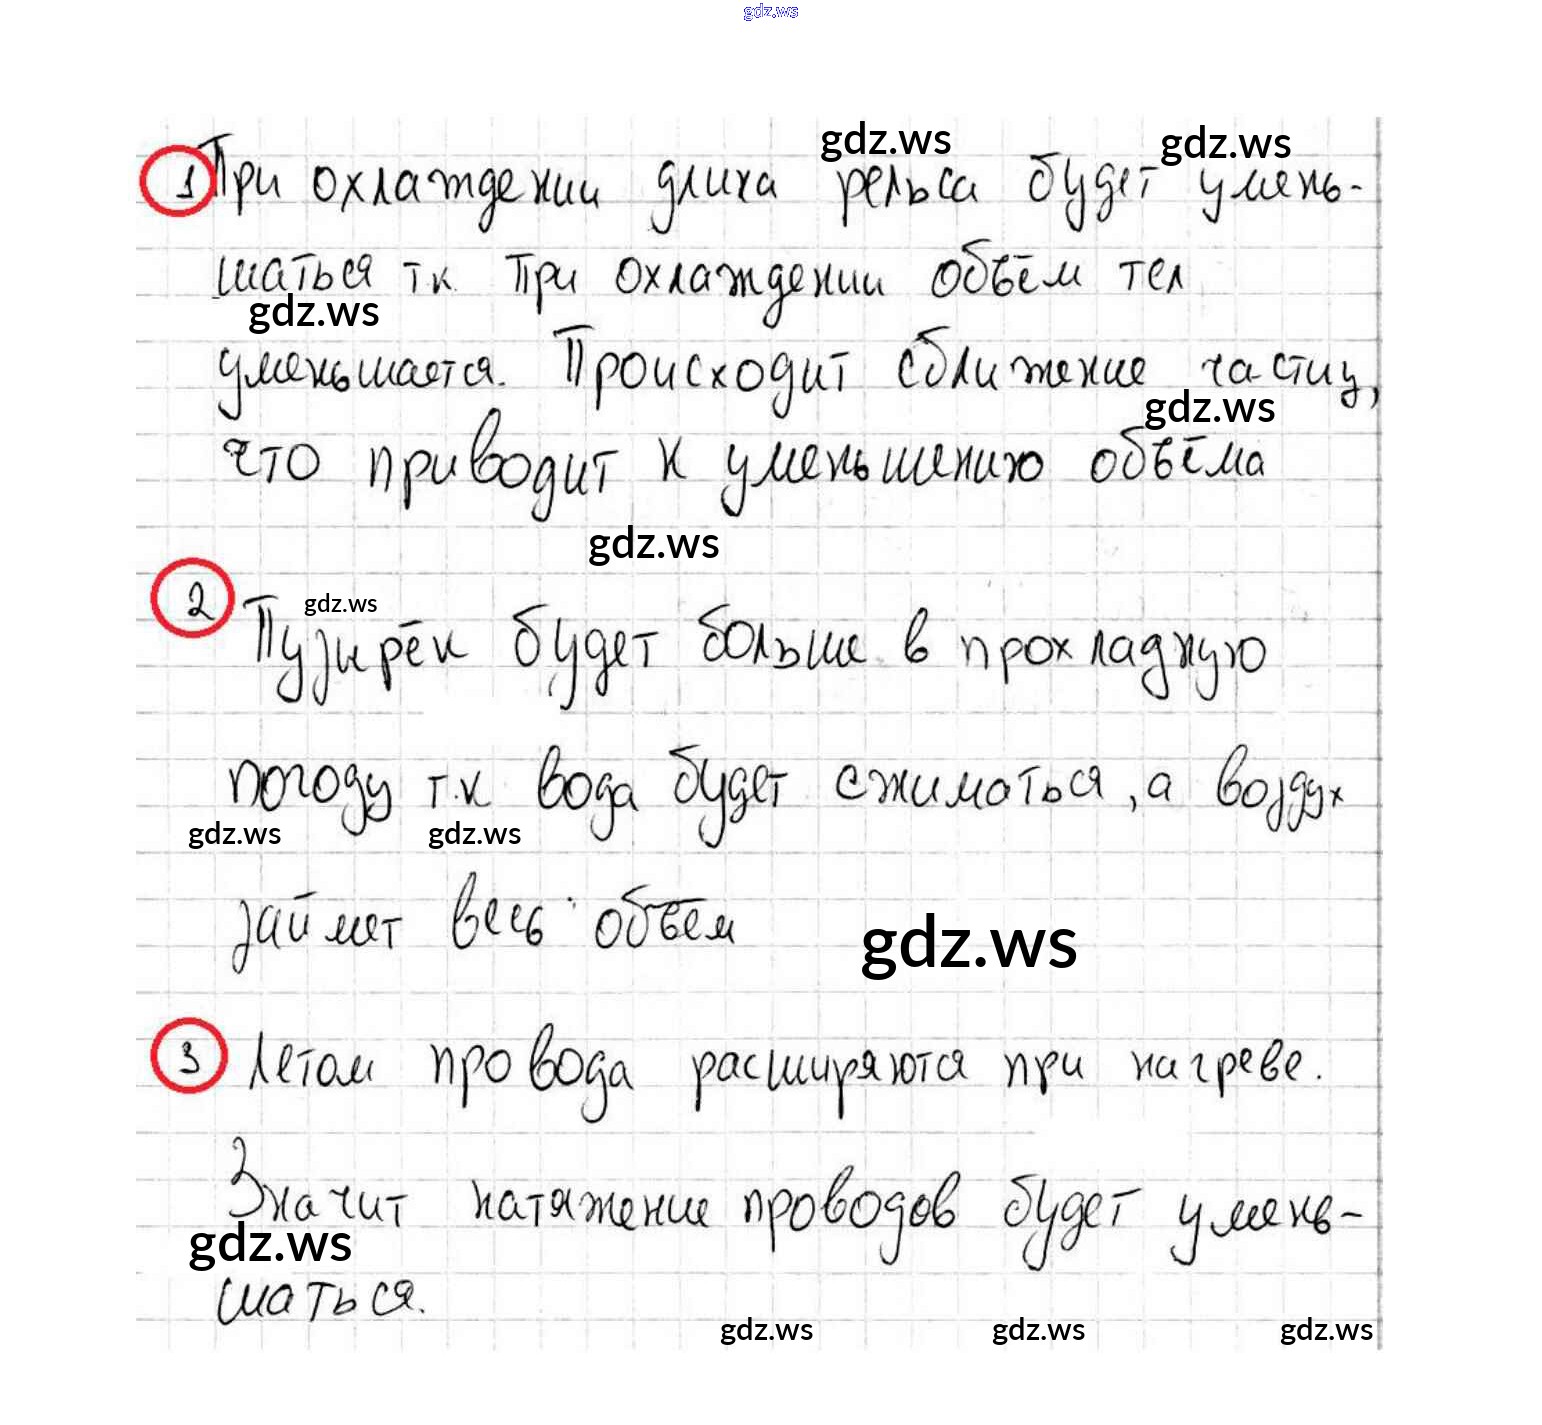 gdz.ws
gdz.ws gdz.ws
1 При охлаждении длина рельса будет умень-
шаться т к при охлаждении объём тел
gdz.ws
уменьшается. Происходит сближение частиц,
gdz.ws
что приводит к уменьшению объёма
gdz.ws
2 gdz.ws
Пузырёк будет больше в прохладную
погоду т.к вода будет сжиматься, а воздух
gdz.ws gdz.ws
займет весь объём
gdz.ws
3 Летом провода расширяются при нагреве.
Значит натяжение проводов будет умень-
gdz.ws
шаться.
gdz.ws gdz.ws gdz.ws